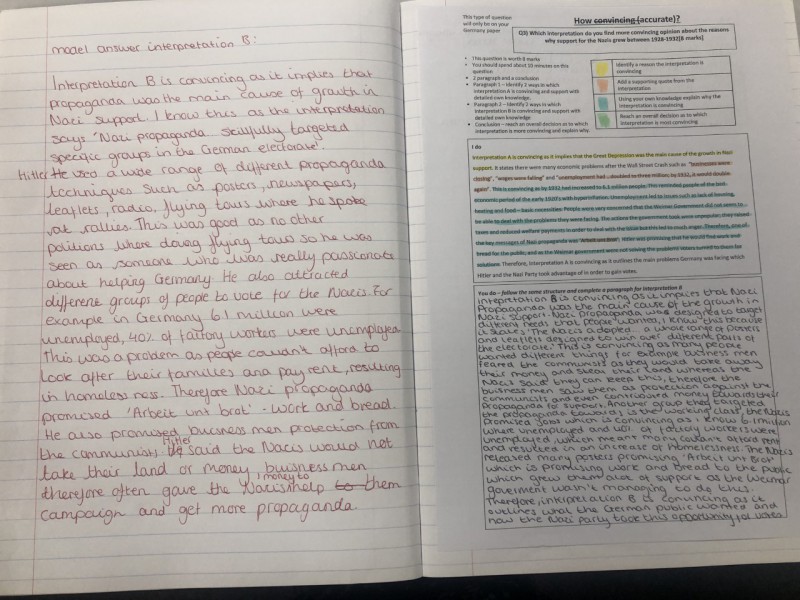 model answer interpretation B:
Interpretation B is convincing as it implies that
propaganda was the main cause of growth in
Nazi support. I know this as the interpretation
says 'Nazi propaganda skillfully targeted
specific groups in the German electorate'.
Hitler He used a wide range of different propaganda
techniques such as posters, newspapers,
leaflets, radio, flying tours where he spoke
at rallies. This was good as no other
politions where doing flying tours so he was
seen as someone who was really passionate
about helping Germany. He also attracted
different groups of people to vote for the Nazis. For
example in Germany 6.1 million were
unemployed, 40% of factory workers were unemployed
This was a problem as people couldn't afford to
look after their families and pay rent, resulting
in homelessness. Therefore Nazi propaganda
promised 'Arbeit unt brot' - work and bread.
He also promised buisness men protection from
the communists Hitler said the Nazis would not
take their land or money buisness men
therefore often gave the Nazis money to help to them
campaign and get more propaganda.
This type of question
will only be on your
Germany paper
How convincing (accurate)?
Q3) Which interpretation do you find more convincing opinion about the reasons
why support for the Nazis grew between 1928-1932[8 marks]
This question is worth 8 marks
You should spend about 10 minutes on this
question
2 paragraph and a conclusion
Paragraph 1 – Identify 2 ways in which
interpretation A is convincing and support with
detailed own knowledge.
Paragraph 2 – Identify 2 ways in which
interpretation B is convincing and support with
detailed own knowledge
Conclusion – reach an overall decision as to which
interpretation is more convincing and explain why.
Identify a reason the interpretation is
convincing
Add a supporting quote from the
interpretation
Using your own knowledge explain why the
interpretation is convincing
Reach an overall decision as to which
interpretation is most convincing
I do
Interpretation A is convincing as it implies that the Great Depression was the main cause of the growth in Nazi
support. It states there were many economic problems after the Wall Street Crash such as "businesses were
closing", "wages were falling" and "unemployment had ..doubled to three million; by 1932, it would double
again". This is convincing as by 1932 had increased to 6.1 million people. This reminded people of the bad
economic period of the early 1920's with hyperinflation. Unemployment led to issues such as lack of housing,
heating and food – basic necessities. People were very concerned that the Weimar Government did not seem to
be able to deal with the problems they were facing. The actions the government took were unpopular; they raised
taxes and reduced welfare payments in order to deal with the issue but this led to much anger. Therefore, one of
the key messages of Nazi propaganda was 'Arbeit und Brot'. Hitler was promising that he would find work and
bread for the public and as the Weimar government were not solving the problems voters turned to them for
solutions. Therefore, Interpretation A is convincing as it outlines the main problems Germany was facing which
Hitler and the Nazi Party took advantage of in order to gain votes.
You do – follow the same structure and complete a paragraph for Interpretation B
Interpretation B is convincing as it implies that Nazi
Propaganda was the main cause of the growth in
Nazi support. Nazi Propaganda was designed to target
different needs that people wanted, I know this because
it states 'The Nazis adopted... a whole range of posters
and leaflets designed to win over different parts of
the electorate.' This is convincing as many people
wanted different things for example business men
feared the communists as they would take away
their money and steal their land whereas the
Nazis said they can keep this, therefore the
business men saw them as protection against the
communists and even contributed money towards their
propaganda for support. Another group they targeted
the propaganda towards is the working class, the Nazis
promised jobs which is convincing as I know 6.1 million
where unemployed and 40% of factory workers were
unemployed, which meant many couldnt afford rent
and resulted in an increase of homelessness. The Nazis
released many posters promising 'Arbeit unt Brot'
which is promising work and bread to the public
which grew them alot of support as the Weimar
goverment wasn't managing to do this.
Therefore, interpretation B is convincing as it
outlines what the German public wanted and
how the Nazi party took this opportunity for votes.